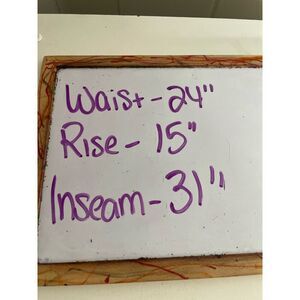 Waist-24"
Rise- 15"
Inseam-31"